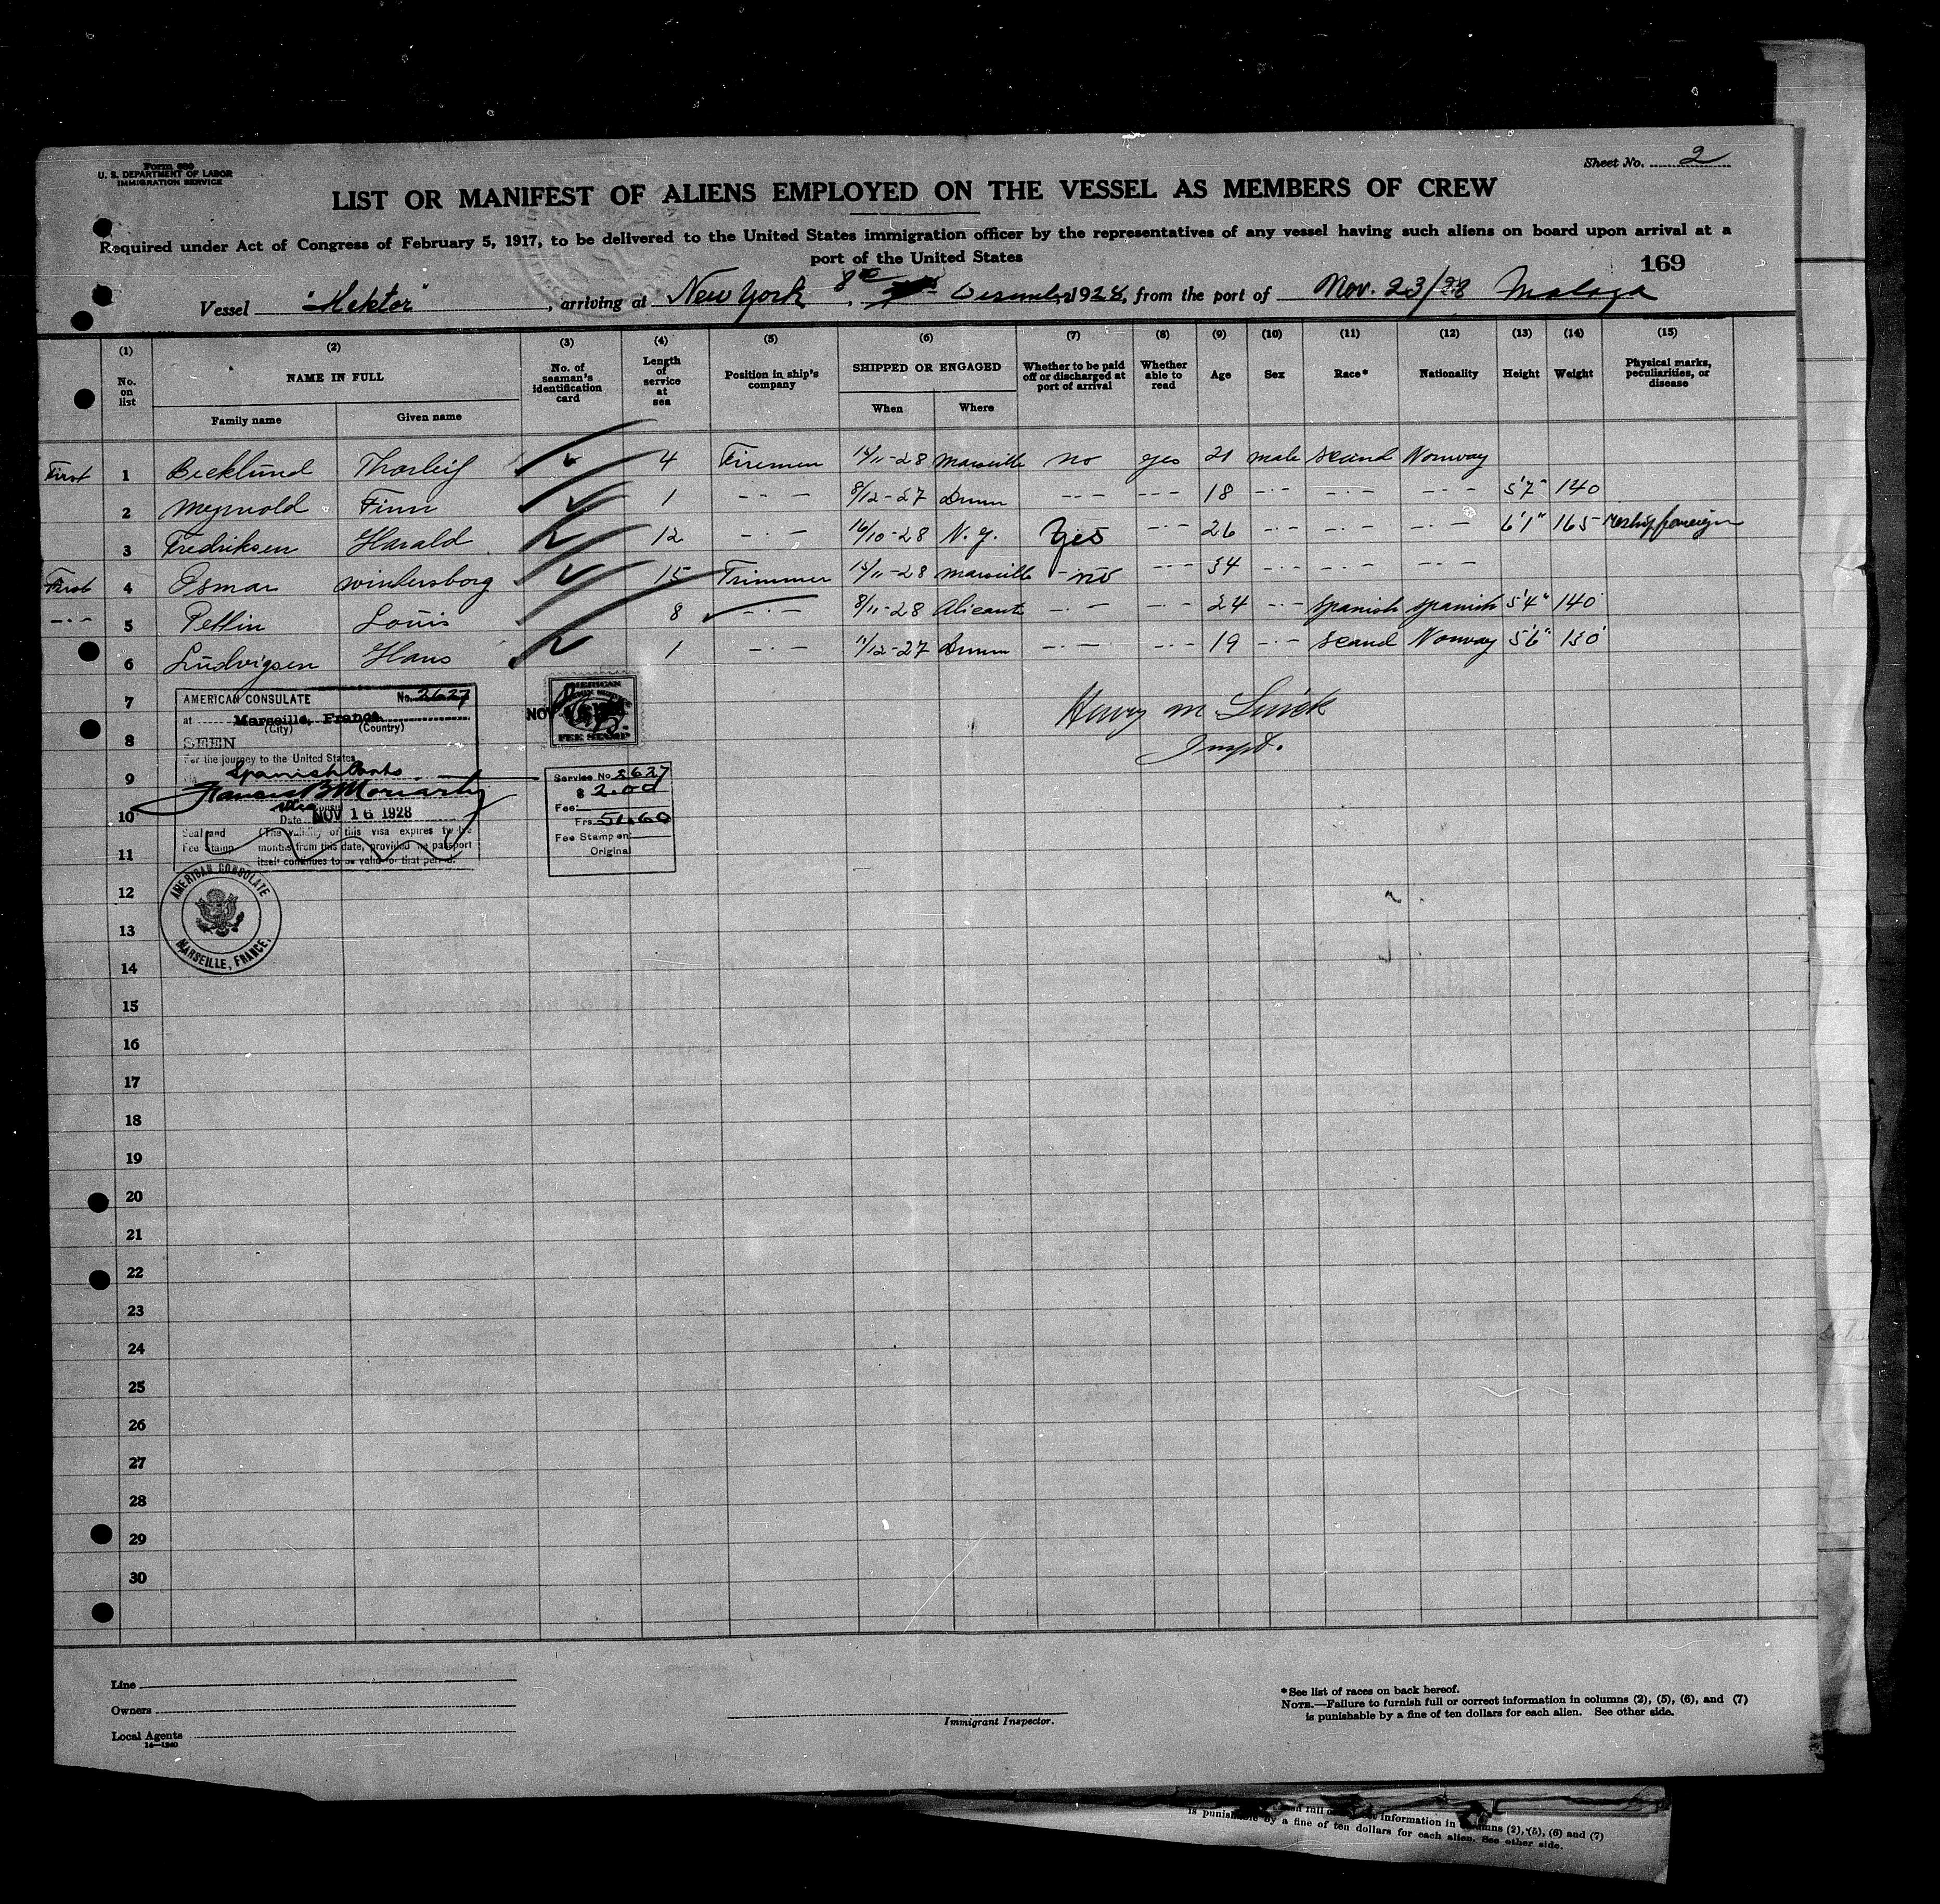 Form 680
U. S. DEPARTMENT OF LABOR
IMMIGRATION SERVICE
Sheet No. 2
LIST OR MANIFEST OF ALIENS EMPLOYED ON THE VESSEL AS MEMBERS OF CREW
Required under Act of Congress of February 5, 1917, to be delivered to the United States immigration officer by the representatives of any vessel having such aliens on board upon arrival at a
port of the United States
169
Vessel "Hektor", arriving at New York 8th Desember, 1928, from the port of Nov. 23/28 Malaga
(1) (2) (3) (4) (5) (6) (7) (8) (9) (10) (11) (12) (13) (14) (15)
No. on list
NAME IN FULL
Family name Given name
No. of seaman's identification card
Length of service at sea
Position in ship's company
SHIPPED OR ENGAGED
When Where
Whether to be paid off or discharged at port of arrival
Whether able to read
Age
Sex
Race*
Nationality
Height
Weight
Physical marks, peculiarities, or disease
First 1 Becklund Thorleif 4 Firemen 15/11-28 Marseille no yes 21 male scand Norway
2 Meynvold Finn 1 -·- 8/12-27 --- --- 18 -·- -·- -·- 5'7" 140
3 Fredriksen Harald 12 -·- 16/10-28 N.Y. Yes -·- 26 -·- -·- -·- 6'1" 165
First 4 Osmar wintersborg 15 Trimmer 15/11-28 Marseille no -·- 34 -·- -·- -·-
-·- 5 Pellin Louis 8 -·- 8/11-28 Alicante -·- -·- 24 -·- spanish spanish 5'4" 140
6 Ludvigsen Hans 1 -·- 11/12-27 -·- -·- 19 -·- scand Norway 5'6" 150
7
8
9
10
11
12
13
14
15
16
17
18
19
20
21
22
23
24
25
26
27
28
29
30
AMERICAN CONSULATE No. 2627
at Marseille, France
(City) (Country)
SEEN
For the journey to the United States
via Spanish Ports
Francis B Moriarty
Vice Consul
Date NOV 16 1928
Seal and Fee Stamp
(The validity of this visa expires twelve
months from this date, provided the passport
itself continues to be valid for that period.
AMERICAN CONSULATE
MARSEILLE, FRANCE.
AMERICAN
FEE STAMP
NOV
Service No 2627
$ 2.00
Fee:
Frs 51.60
Fee Stamp on
Original
Henry M.
Inspt.
Line
Owners
Local Agents
14—1240
Immigrant Inspector.
*See list of races on back hereof.
NOTE.—Failure to furnish full or correct information in columns (2), (5), (6), and (7)
is punishable by a fine of ten dollars for each alien. See other side.
information in columns (2), (5), (6) and (7)
is punishable by a fine of ten dollars for each alien. See other side.